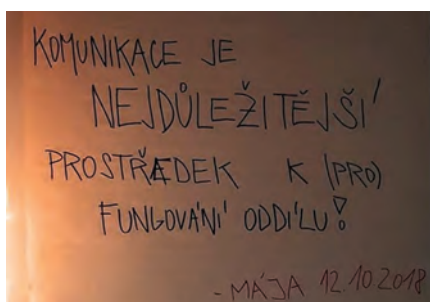 KOMUNIKACE JE
NEJDŮLEŽITĚJŠÍ
PROSTŘEDEK K (PRO)
FUNGOVÁNÍ ODDÍLU!
- MÁJA 12.10.2018